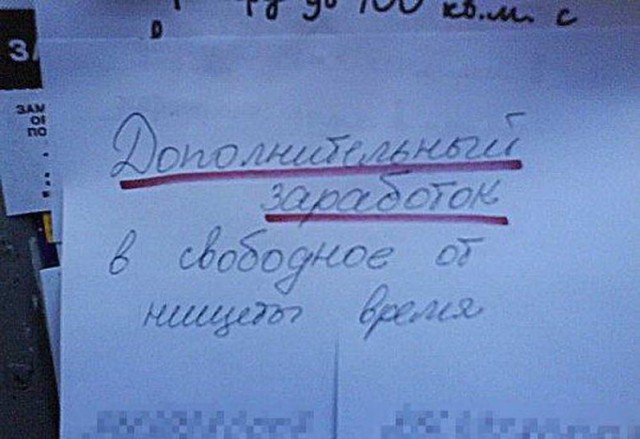 до 100 кв.м. с
ЗАМ
ПО
Дополнительный
заработок
в свободное от
нищеты время